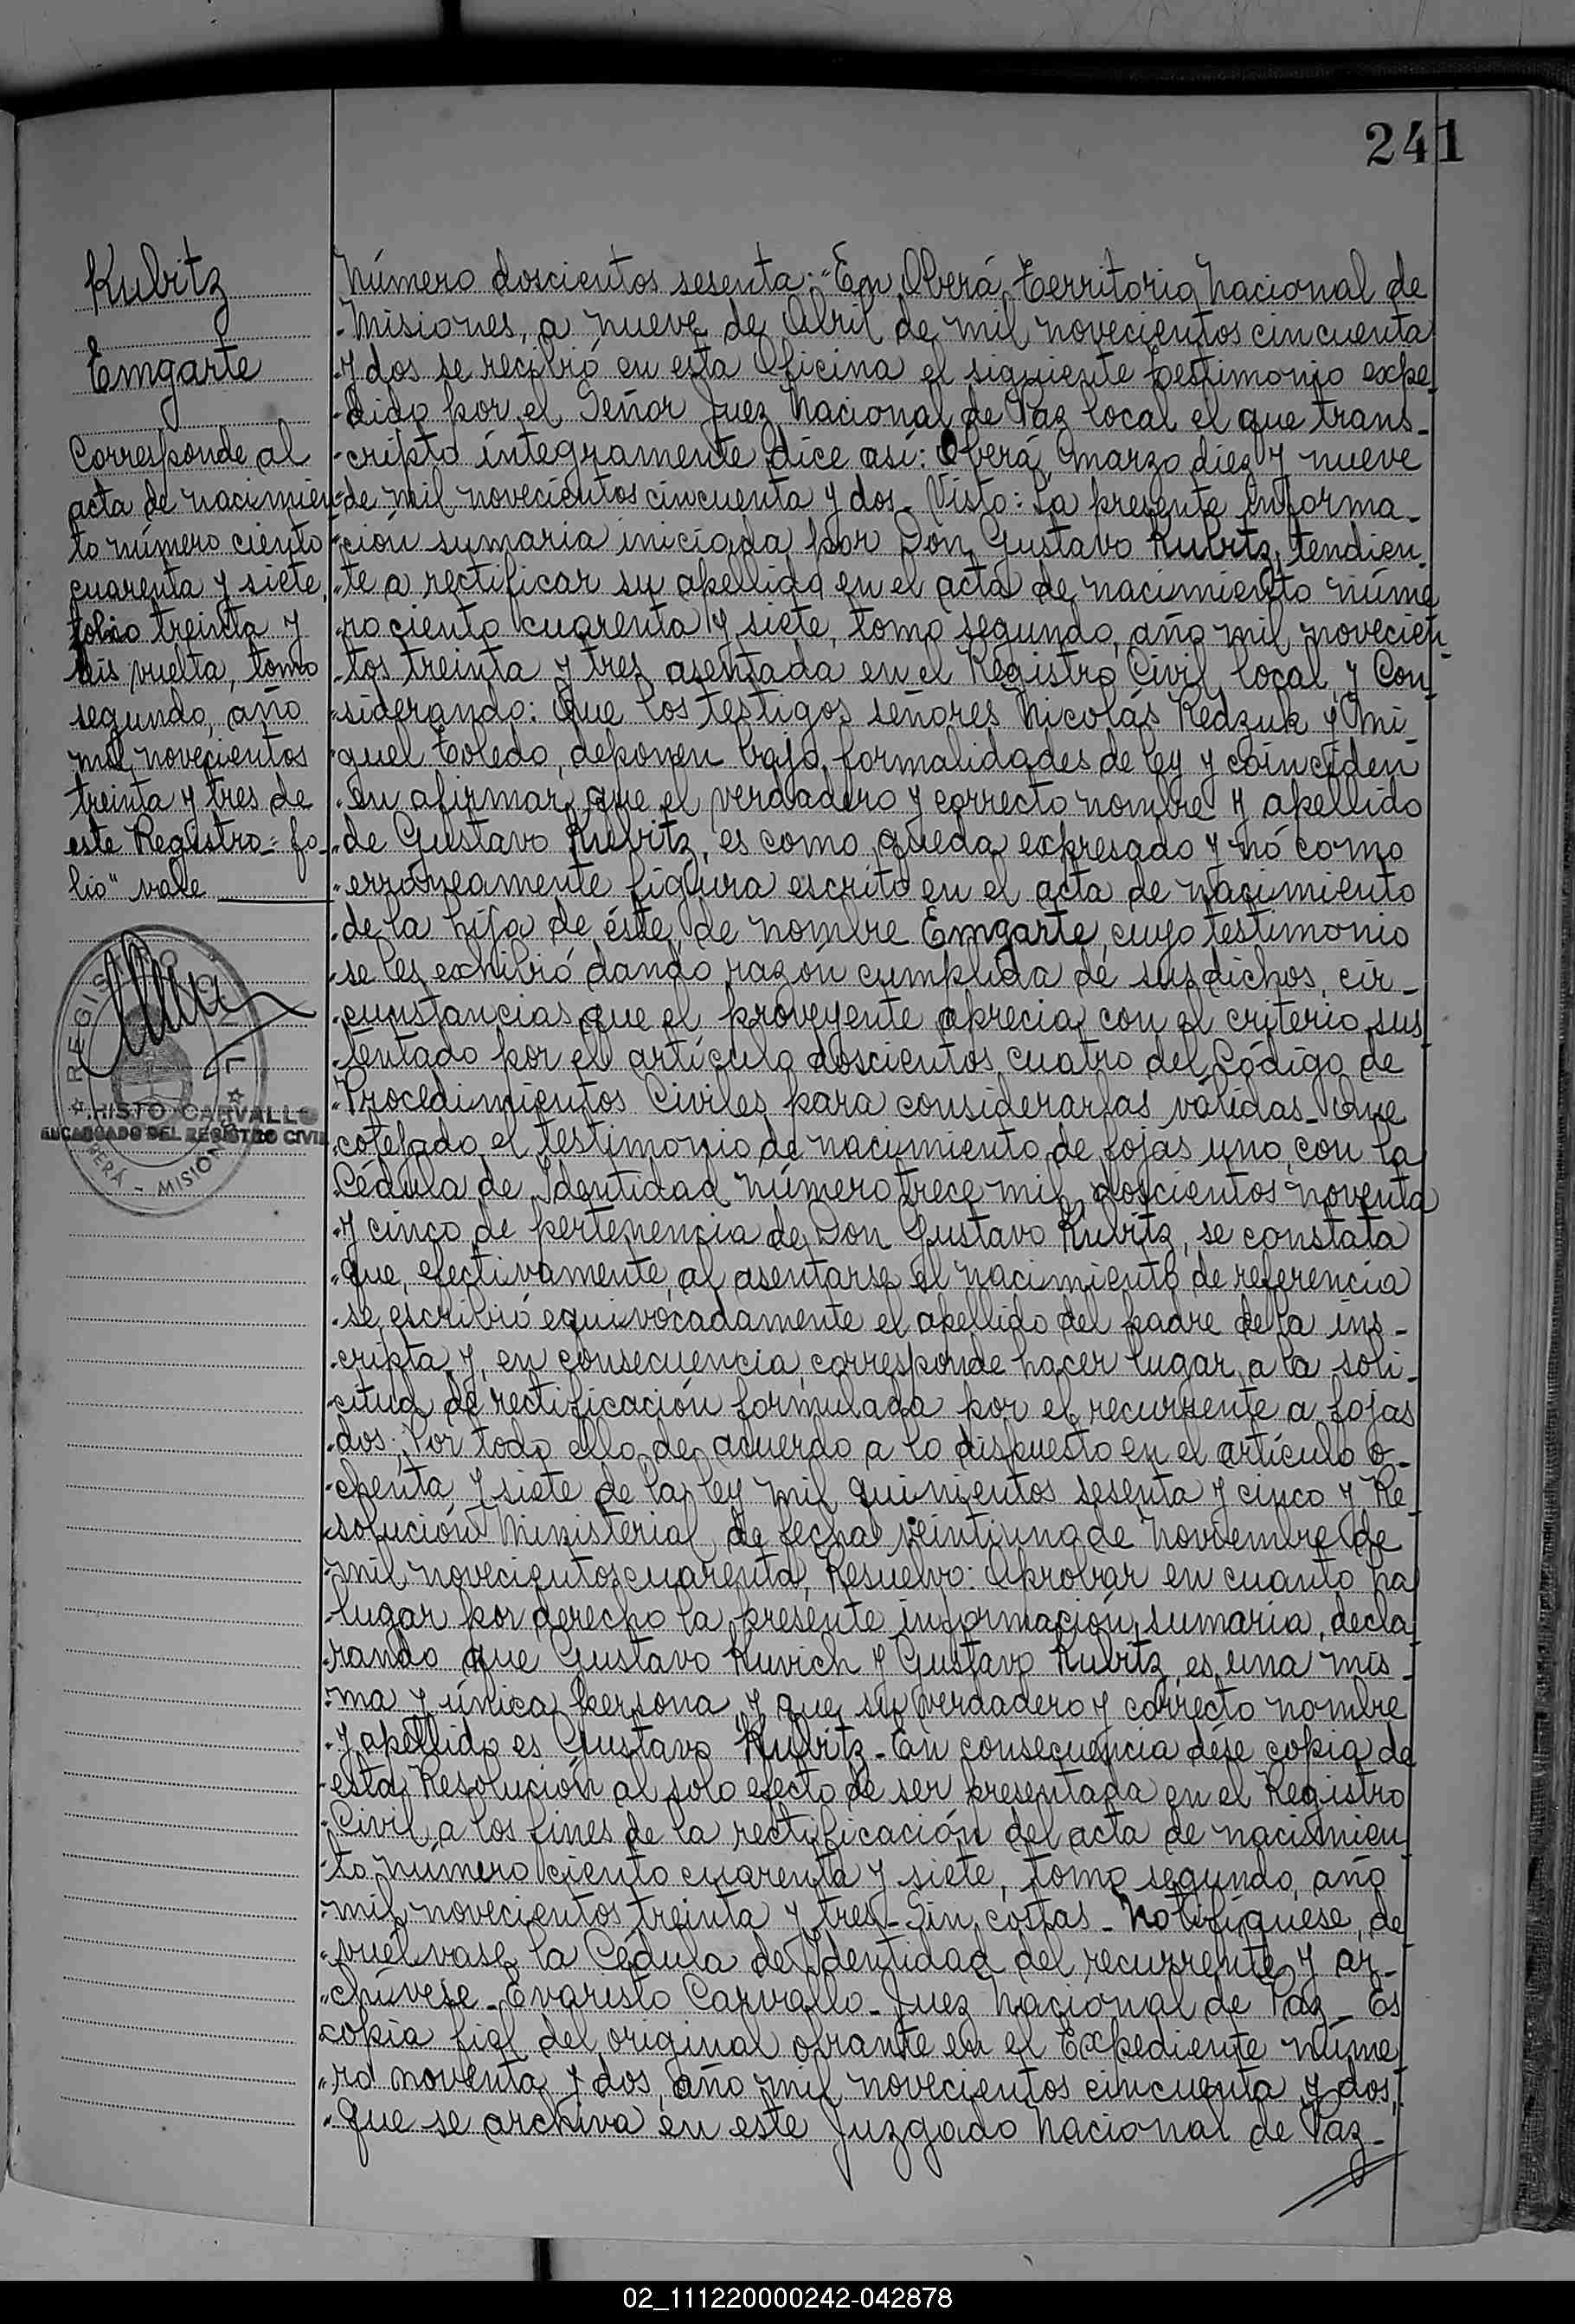 241
Kubitz
Emgarte
Corresponde al
acta de nacimien-
to número ciento
cuarenta y siete,
folio treinta y
seis vuelta, tomo
segundo, año
mil novecientos
treinta y tres de
este Registro.= fo-
lio" vale
REGISTRO CIVIL
RISTO CARVALLO
ENCARGADO DEL REGISTRO CIVIL
OBERÁ - MISIONES
Número doscientos sesenta:-En Oberá, Territorio Nacional de
Misiones, a nueve de Abril de mil novecientos cincuenta
y dos se recibió en esta Oficina el siguiente testimonio expe-
dido por el Señor Juez Nacional de Paz local el que trans-
cripto íntegramente dice así: Oberá, marzo diez y nueve
de mil novecientos cincuenta y dos.- Visto: La presente informa-
ción sumaria iniciada por Don Gustavo Kubitz, tendien-
te a rectificar su apellido en el acta de nacimiento núme
ro ciento cuarenta y siete, tomo segundo, año mil novecien-
tos treinta y tres asentada en el Registro Civil local, y Con-
siderando: Que los testigos señores Nicolás Redzuk y Mi-
guel Toledo, deponen bajo formalidades de ley y coinciden
en afirmar que el verdadero y correcto nombre y apellido
de Gustavo Kubitz, es como queda expresado y nó como
erróneamente figura escrito en el acta de nacimiento
de la hija de éste, de nombre Emgarte, cuyo testimonio
se les exhibió dando razón cumplida de sus dichos, cir-
cunstancias que el proveyente aprecia con el criterio sus
tentado por el artículo doscientos cuatro del Código de
Procedimientos Civiles para considerarlas válidas.- Que
cotejado el testimonio de nacimiento de fojas uno, con la
Cédula de Identidad número trece mil doscientos noventa
y cinco de pertenencia de Don Gustavo Kubitz, se constata
que, efectivamente, al asentarse el nacimiento de referencia
se escribió equivocadamente el apellido del padre de la ins-
cripta y, en consecuencia, corresponde hacer lugar a la soli-
citud de rectificación formulada por el recurrente a fojas
dos; Por todo ello, de acuerdo a lo dispuesto en el artículo o-
chenta y siete de la ley mil quinientos sesenta y cinco y Re-
solución Ministerial de fecha veintiuno de Noviembre de
mil novecientos cuarenta, Resuelvo: Aprobar en cuanto ha
lugar por derecho la presente información sumaria, decla
rando que Gustavo Kuvich y Gustavo Kubitz, es una mis-
ma y única persona y que su verdadero y correcto nombre
y apellido es Gustavo Kubitz.- En consecuencia dése copia de
esta Resolución al solo efecto de ser presentada en el Registro
Civil a los fines de la rectificación del acta de nacimien
to número ciento cuarenta y siete, tomo segundo, año
mil novecientos treinta y tres.- Sin costas.- Notifíquese, de
vuélvase la Cédula de Identidad del recurrente y ar-
chívese.- Evaristo Carvallo - Juez Nacional de Paz.- Es
copia fiel del original obrante en el Expediente núme
ro noventa y dos, año mil novecientos cincuenta y dos,
que se archiva en este Juzgado Nacional de Paz.-
02_111220000242-042878